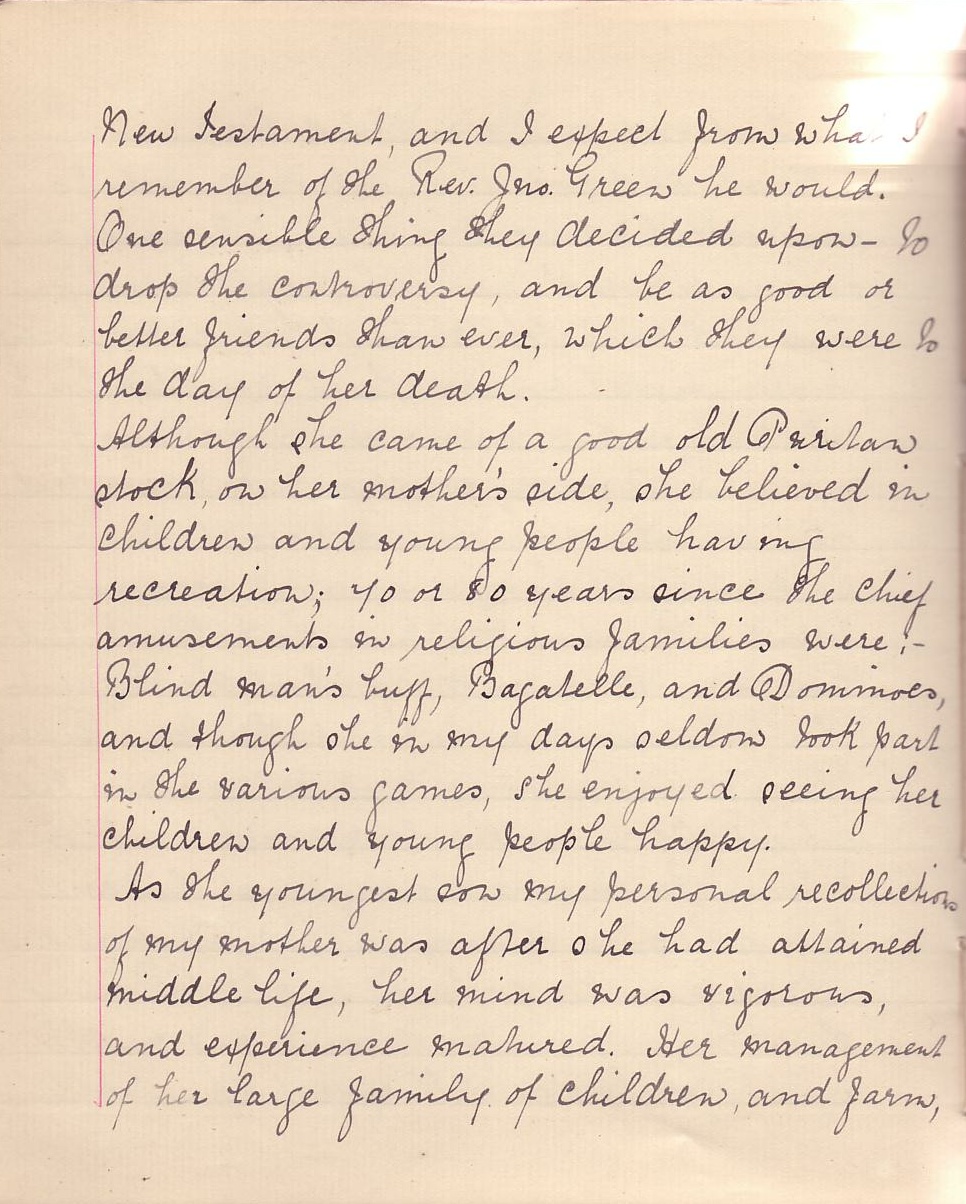 New Testament, and I expect from what I
remember of the Rev. Jno. Green he would.
One sensible thing they decided upon - to
drop the controversy, and be as good or
better friends than ever, which they were to
the day of her death.
Although she came of a good old Puritan
stock, on her mother's side, she believed in
children and young people having
recreation; 70 or 80 years since the chief
amusements in religious families were :-
Blind man's buff, Bagatelle, and Dominoes,
and though she in my days seldom took part
in the various games, she enjoyed seeing her
children and young people happy.
As the youngest son my personal recollections
of my mother was after she had attained
middle life, her mind was vigorous,
and experience matured. Her management
of her large family of children, and farm,